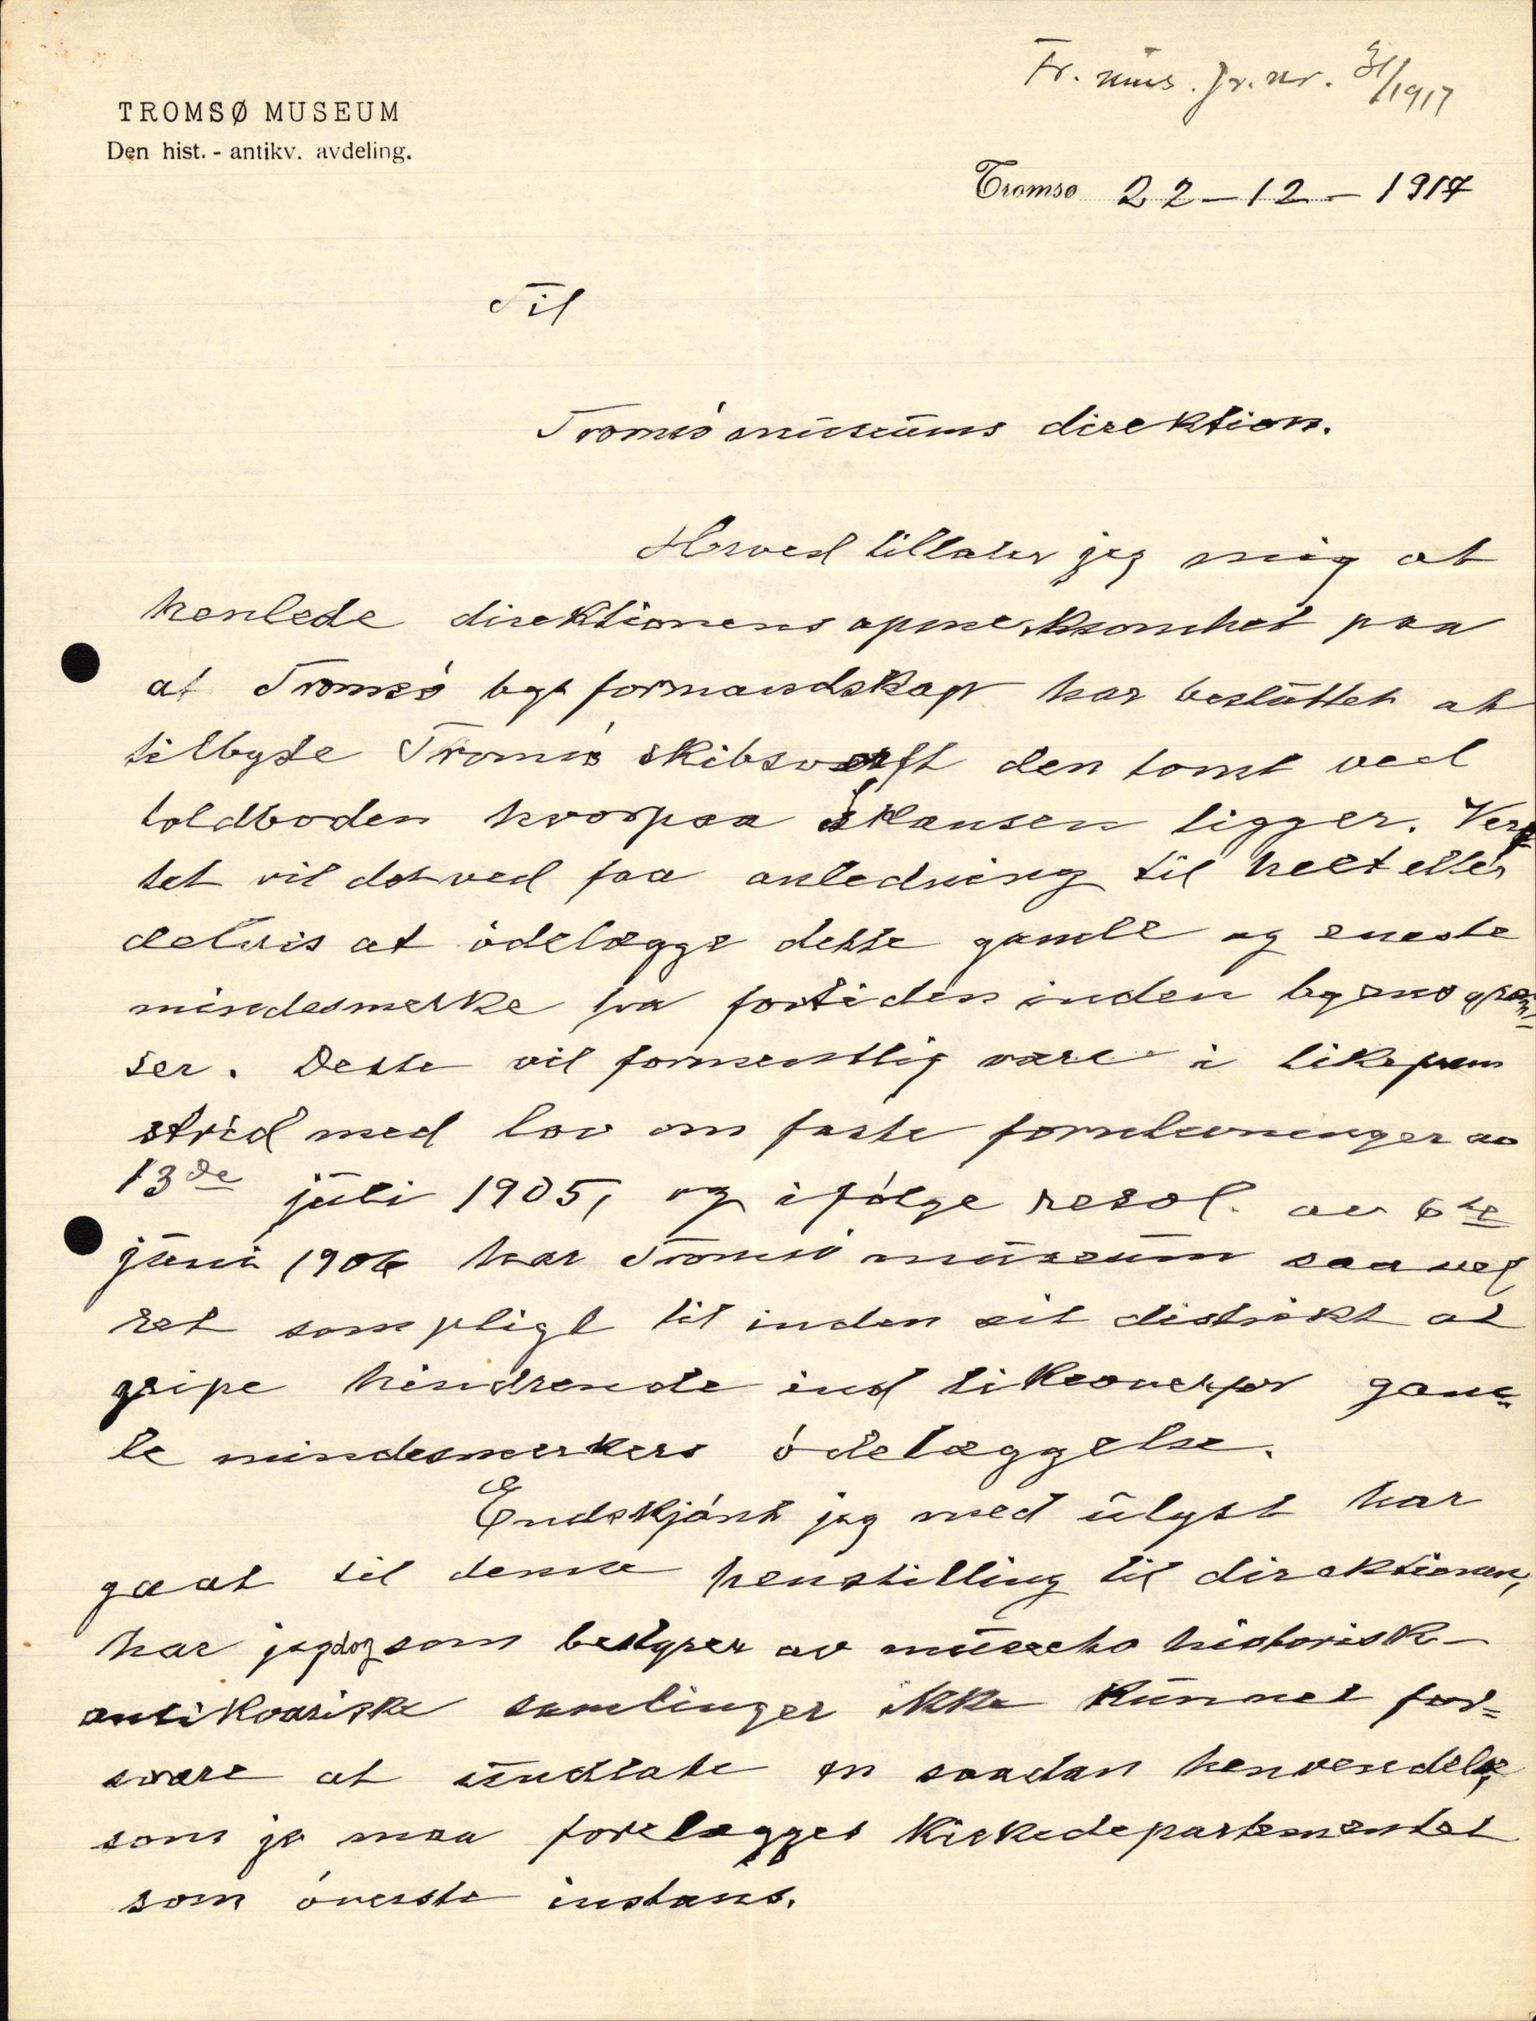 Tr. mus. jr. nr. 31/1917
TROMSØ MUSEUM
Den hist. - antikv. avdeling.
Tromsø 22-12-1917
Til
Tromsø museums direktion.
Herved tillater jeg mig at
henlede direktionens opmerksomhet paa
at Tromsø byformandskap har besluttet at
tilbyde Tromsø skibsverft den tomt ved
toldboden hvorpaa skansen ligger. Verf-
tet vil derved faa anledning til helt eller
delvis at ødelægge dette gamle og eneste
mindesmerke fra fortiden inden byens græn-
ser. Dette vil formentlig være i like frem
strid med lov om faste fornlevninger av
13de juli 1905, og ifølge resol. av 6te
juni 1906 har Tromsø museum saavel
ret som pligt til inden sit distrikt at
gripe hindrende ind likeoverfor gam-
le mindesmerkers ødelæggelse.
Endskjønt jeg med ulyst har
gaat til denne henstilling til direktionen,
har jeg dog som bestyrer av museets historisk-
antikvariske samlinger ikke kunnet for-
svare at undlate en saadan henvendelse,
som jo maa forelægges Kirkedepartementet
som øverste instans.